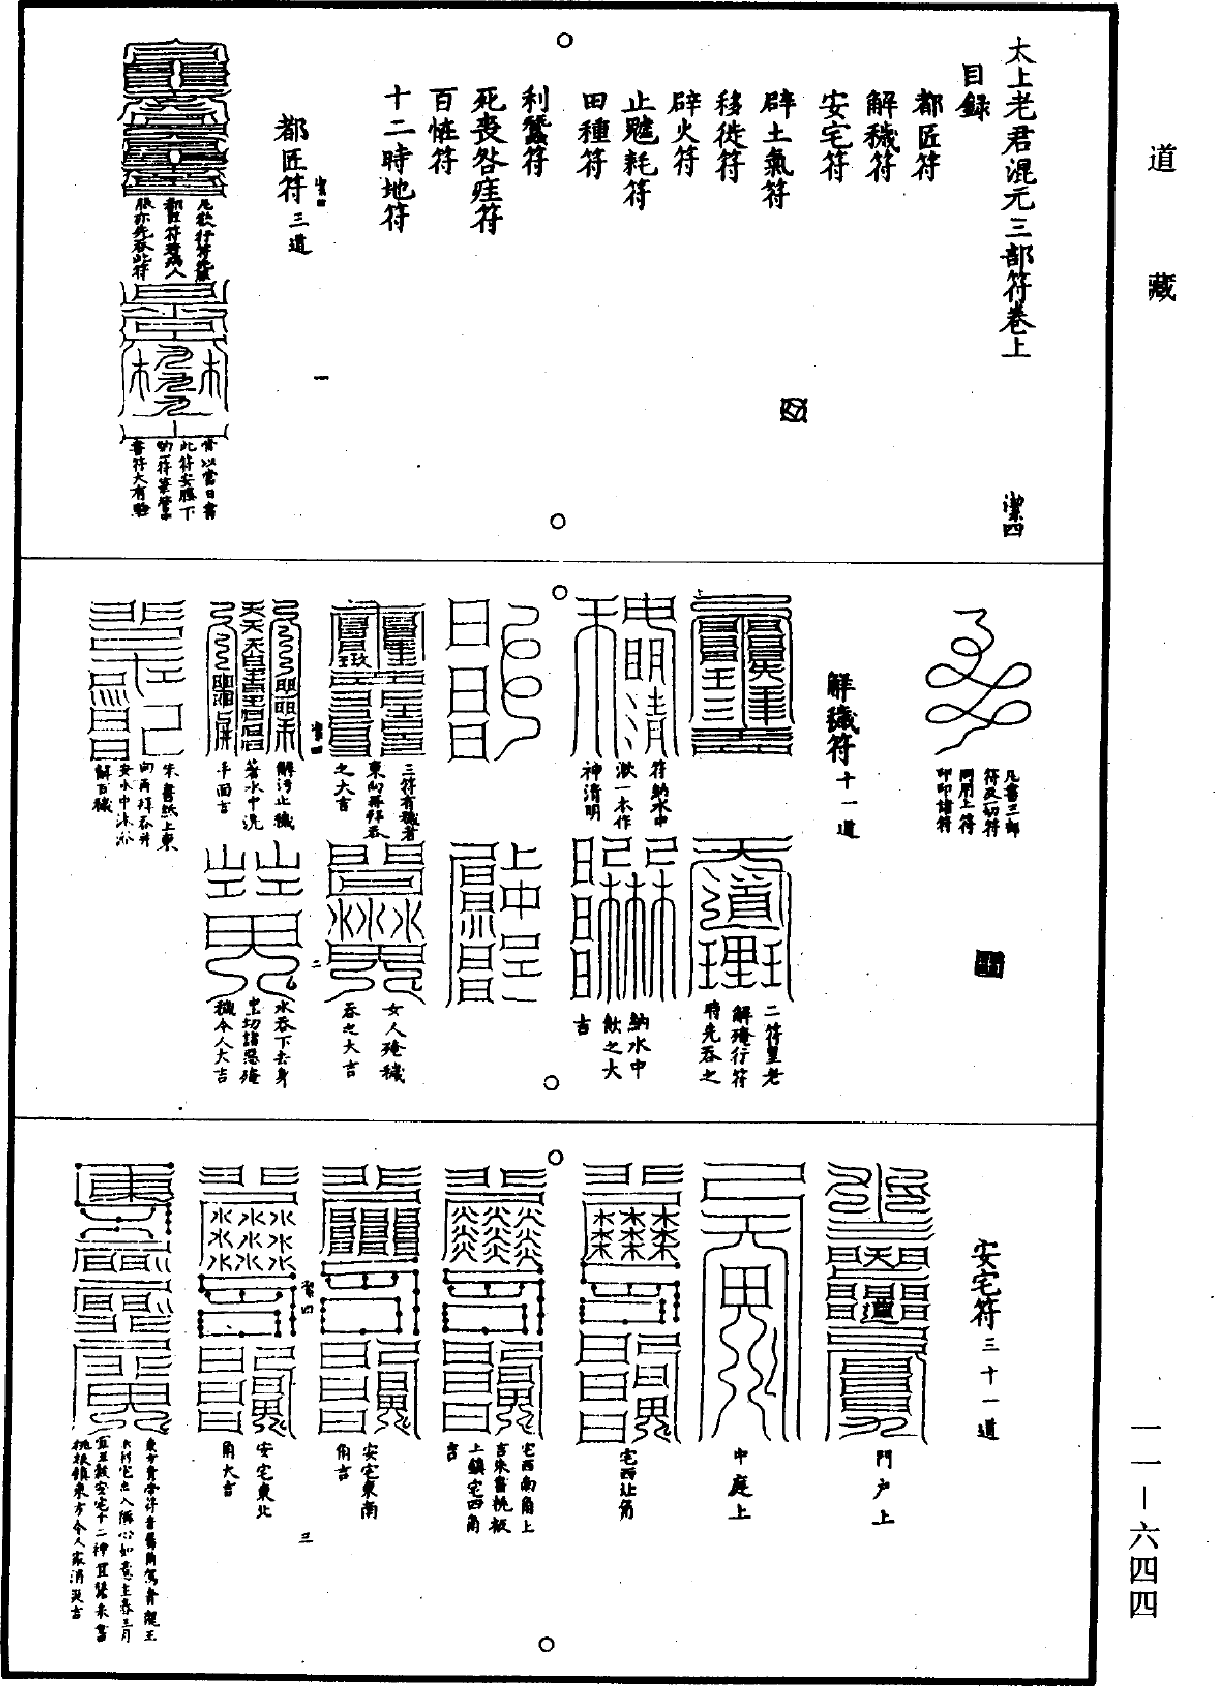 道藏
太上老君混元三部符卷上
潔四
目録
都匠符
解穢符
安宅符
辟土氣符
移徙符
辟火符
止魖耗符
田種符
利蠶符
死喪咎疰符
百怪符
十二時地符
潔四
一
都匠符三道
凡欲行符先服
都匠符若爲人
服亦先吞此符
常以當日書
此符安臍下
書符大有驗
凡書三部
符及一切符
同用上符
印印諸符
解穢符十一道
二符皇老
解殗行符
時先吞之
符納水中
漱一本作
神清明
納水中
飲之大
吉
三符有穢者
東向再拜吞
之大吉
女人殗穢
吞之大吉
潔四
二
解污止穢
著水中洗
手面吉
水吞下去身
穢令人大吉
朱書紙上東
向再拜吞并
安水中沐浴
解百穢
安宅符三十一道
門户上
中庭上
宅西北角
宅西南角上
吉朱書桃板
上鎮宅四角
吉
安宅東南
角吉
潔四
三
安宅東北
角大吉
桃板鎮東方令人家消災吉
一一—六四四